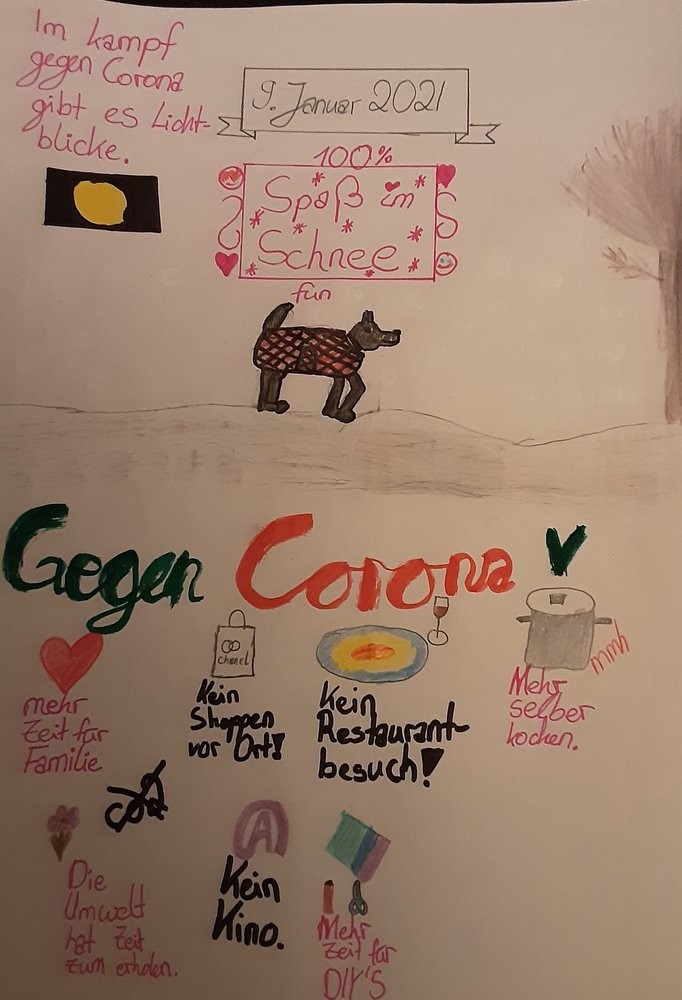 Im kampf
gegen Corona
gibt es Licht-
blicke.
9. Januar 2021
100%
Spaß im
Schnee
fun
Gegen Corona
chanel
mmh
mehr
Zeit für
Familie
Kein
Shoppen
vor Ort!
Kein
Restaurant-
besuch!
Mehr
selber
kochen.
A
Die
Umwelt
hat Zeit
zum erholen.
Kein
Kino.
Mehr
Zeit für
DIY'S